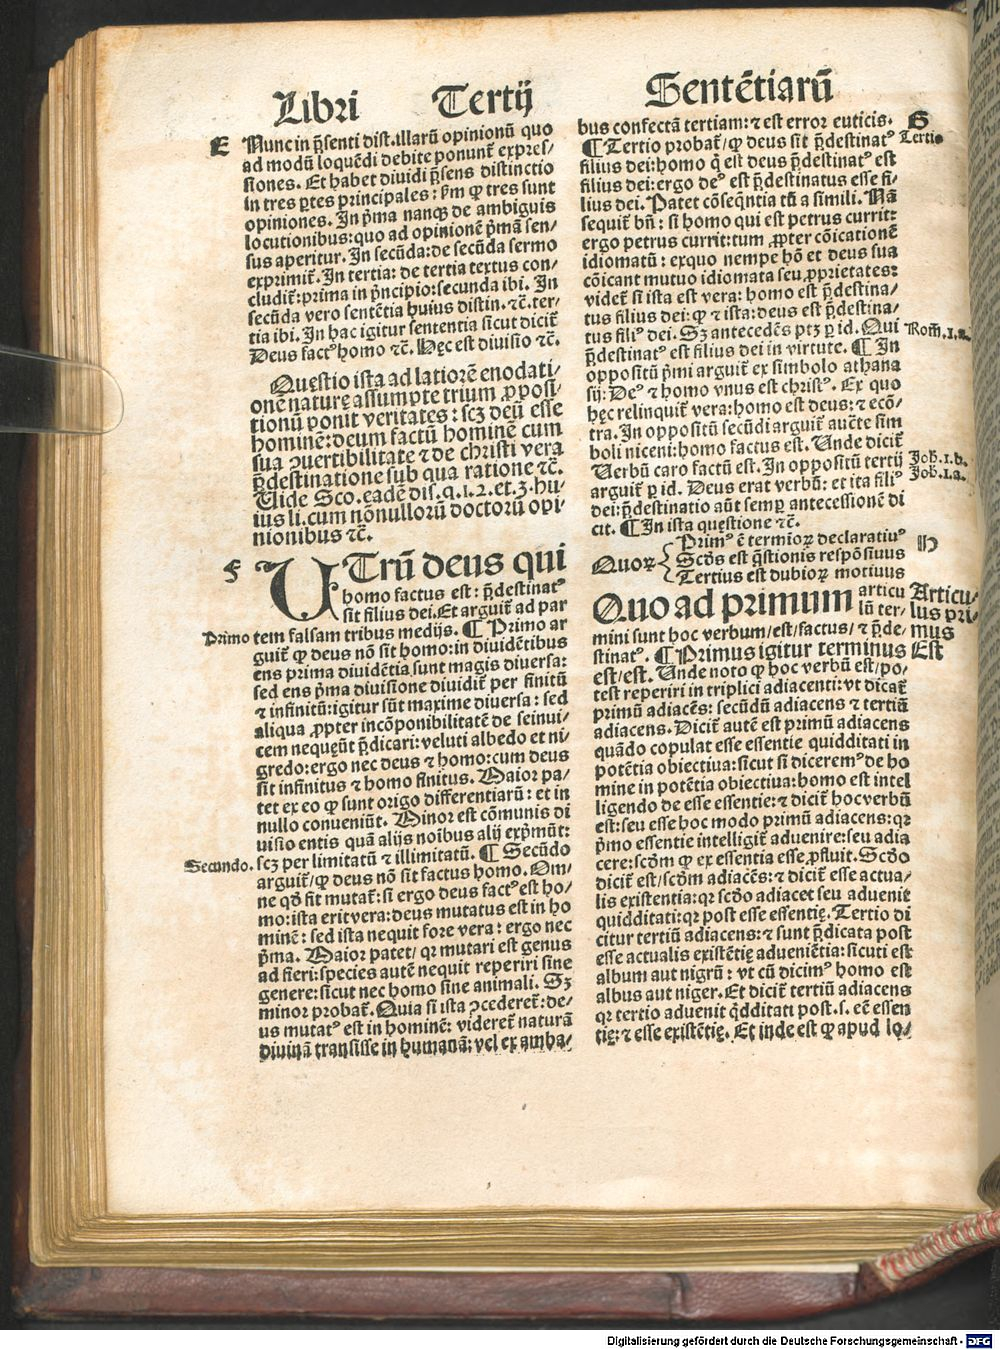 Libri Tertij Sentẽtiarũ
E Nunc in p̃senti dist. illarũ opinionũ quo
ad modũ loquẽdi debite ponunt̃ expres/
siones. Et habet diuidi p̃sens distinctio
in tres ꝑtes principales: p̃m ꝙ tres sunt
opiniones. In p̃ma nanqꝫ de ambiguis
locutionibus: quo ad opinionẽ p̃mã sen/
sus aperitur. In secũda: de secũda sermo
exprimit̃. In tertia: de tertia textus con/
cludit̃: prima in p̃ncipio: secunda ibi. In
secũda vero sentẽtia huius distin. ⁊c̃. ter/
tia ibi. In hac igitur sententia sicut dicit̃
Deus factꝰ homo ⁊c̃. Hęc est diuisio ⁊c̃.
Questio ista ad latiorẽ enodati/
onẽ naturę assumpte trium ꝓposi/
tionũ ponit veritates: scꝫ deũ esse
hominẽ: deum factũ hominẽ cum
sua ꝯuertibilitate ⁊ de christi vera
p̃destinatione sub qua ratione ⁊c̃.
Uide Sco. eadẽ dis. q. 1. 2. et. 3. hu/
ius li. cum nõnullorũ doctorũ opi/
nionibus ⁊c̃.
F UTrũ deus qui
homo factus est: p̃destinatꝰ
sit filius dei. Et arguit̃ ad par
Primo tem falsam tribus medijs. ¶ Primo ar
guit̃ ꝙ deus nõ sit homo: in diuidẽtibus
ens prima diuidẽtia sunt magis diuersa:
sed ens p̃ma diuisione diuidit̃ per finitũ
⁊ infinitũ: igitur sũt maxime diuersa: sed
aliqua ꝓpter incõponibilitatẽ de seinui/
cem nequeũt p̃dicari: veluti albedo et ni/
gredo: ergo nec deus ⁊ homo: cum deus
sit infinitus ⁊ homo finitus. Maior pa/
tet ex eo ꝙ sunt origo differentiarũ: et in
nullo conueniũt. Minor est cõmunis di
uisio entis quã alijs noĩbus alij exp̃mũt:
Secundo. scꝫ per limitatũ ⁊ illimitatũ. ¶ Secũdo
arguit̃/ ꝙ deus nõ sit factus homo. Om/
ne qd̃ fit mutat̃: si ergo deus factꝰ est ho/
mo: ista erit vera: deus mutatus est in ho
minẽ: sed ista nequit fore vera: ergo nec
p̃ma. Maior patet/ qꝛ mutari est genus
ad fieri: species autẽ nequit reperiri sine
genere: sicut nec homo sine animali. Sꝫ
minor probat̃. Quia si ista ꝯcederet̃: de/
us mutatꝰ est in hominẽ: videret̃ naturã
diuinã transisse in humanã: vel ex amba/
bus confectã tertiam: ⁊ est error euticis. G
¶ Tertio probat̃/ ꝙ deus sit p̃destinatꝰ Tertio
filius dei: homo q̃ est deus p̃destinatꝰ est
filius dei: ergo deꝰ est p̃destinatus esse fi/
lius dei. Patet cõseq̃ntia tũ a simili. Nã
sequit̃ bñ: si homo qui est petrus currit:
ergo petrus currit: tum ꝓpter cõicationẽ
idiomatũ: exquo nempe hõ et deus sua
cõicant mutuo idiomata seu ꝓprietates:
videt̃ si ista est vera: homo est p̃destina/
tus filius dei: ꝙ ⁊ ista: deus est p̃destina/
tus filiꝰ dei. Sꝫ antecedẽs ptꝫ ꝑ id. Qui Rom̃. 1. a.
p̃destinatꝰ est filius dei in virtute. ¶ In
oppositũ p̃mi arguit̃ ex simbolo athana
sij: Deꝰ ⁊ homo vnus est christꝰ. Ex quo
hęc relinquit̃ vera: homo est deus: ⁊ ecõ/
tra. In oppositũ secũdi arguit̃ auct̃e sim
boli niceni: homo factus est. Unde dicit̃
Uerbũ caro factũ est. In oppositũ tertij Joh. 1. b.
arguit̃ ꝑ id. Deus erat verbũ: et ita filiꝰ Joh. 1. a.
dei: p̃destinatio aũt semꝑ antecessionẽ di
cit. ¶ In ista questione ⁊c̃.
Quoꝝ Primꝰ ẽ termĩoꝝ declaratiuꝰ H
Scd̃s est q̃stionis respõsiuus
Tertius est dubioꝝ motiuus
Quo ad primum articu Articu/
lũ ter/ lus pri/
mini sunt hoc verbum/ est/ factus/ ⁊ p̃de/ mus
stinatꝰ. ¶ Primus igitur terminus Est
est/ est. Unde noto ꝙ hoc verbũ est/ po/
test reperiri in triplici adiacenti: vt dicat̃
primũ adiacẽs: secũdũ adiacens ⁊ tertiũ
adiacens. Dicit̃ autẽ est primũ adiacens
quãdo copulat esse essentie quidditati in
potẽtia obiectiua: sicut si diceremꝰ de ho
mine in potẽtia obiectiua: homo est intel
ligendo de esse essentie: ⁊ dicit̃ hoc verbũ
est: seu esse hoc modo primũ adiacens: qꝛ
p̃mo essentie intelligit̃ aduenire: seu adia
cere: scd̃m ꝙ ex essentia esse ꝓfluit. Scd̃o
dicit̃ est/ scd̃m adiacẽs: ⁊ dicit̃ esse actua/
lis existentia: qꝛ scd̃o adiacet seu aduenit
quidditati: qꝛ post esse essentię. Tertio di
citur tertiũ adiacens: ⁊ sunt p̃dicata post
esse actualis existẽtię aduenientia: sicuti est
album aut nigrũ: vt cũ dicimꝰ homo est
albus aut niger. Et dicit̃ tertiũ adiacens
qꝛ tertio aduenit q̃dditati post. s. eẽ essen
tię: ⁊ esse existẽtię. Et inde est ꝙ apud lo/
Digitalisierung gefördert durch die Deutsche Forschungsgemeinschaft - DFG